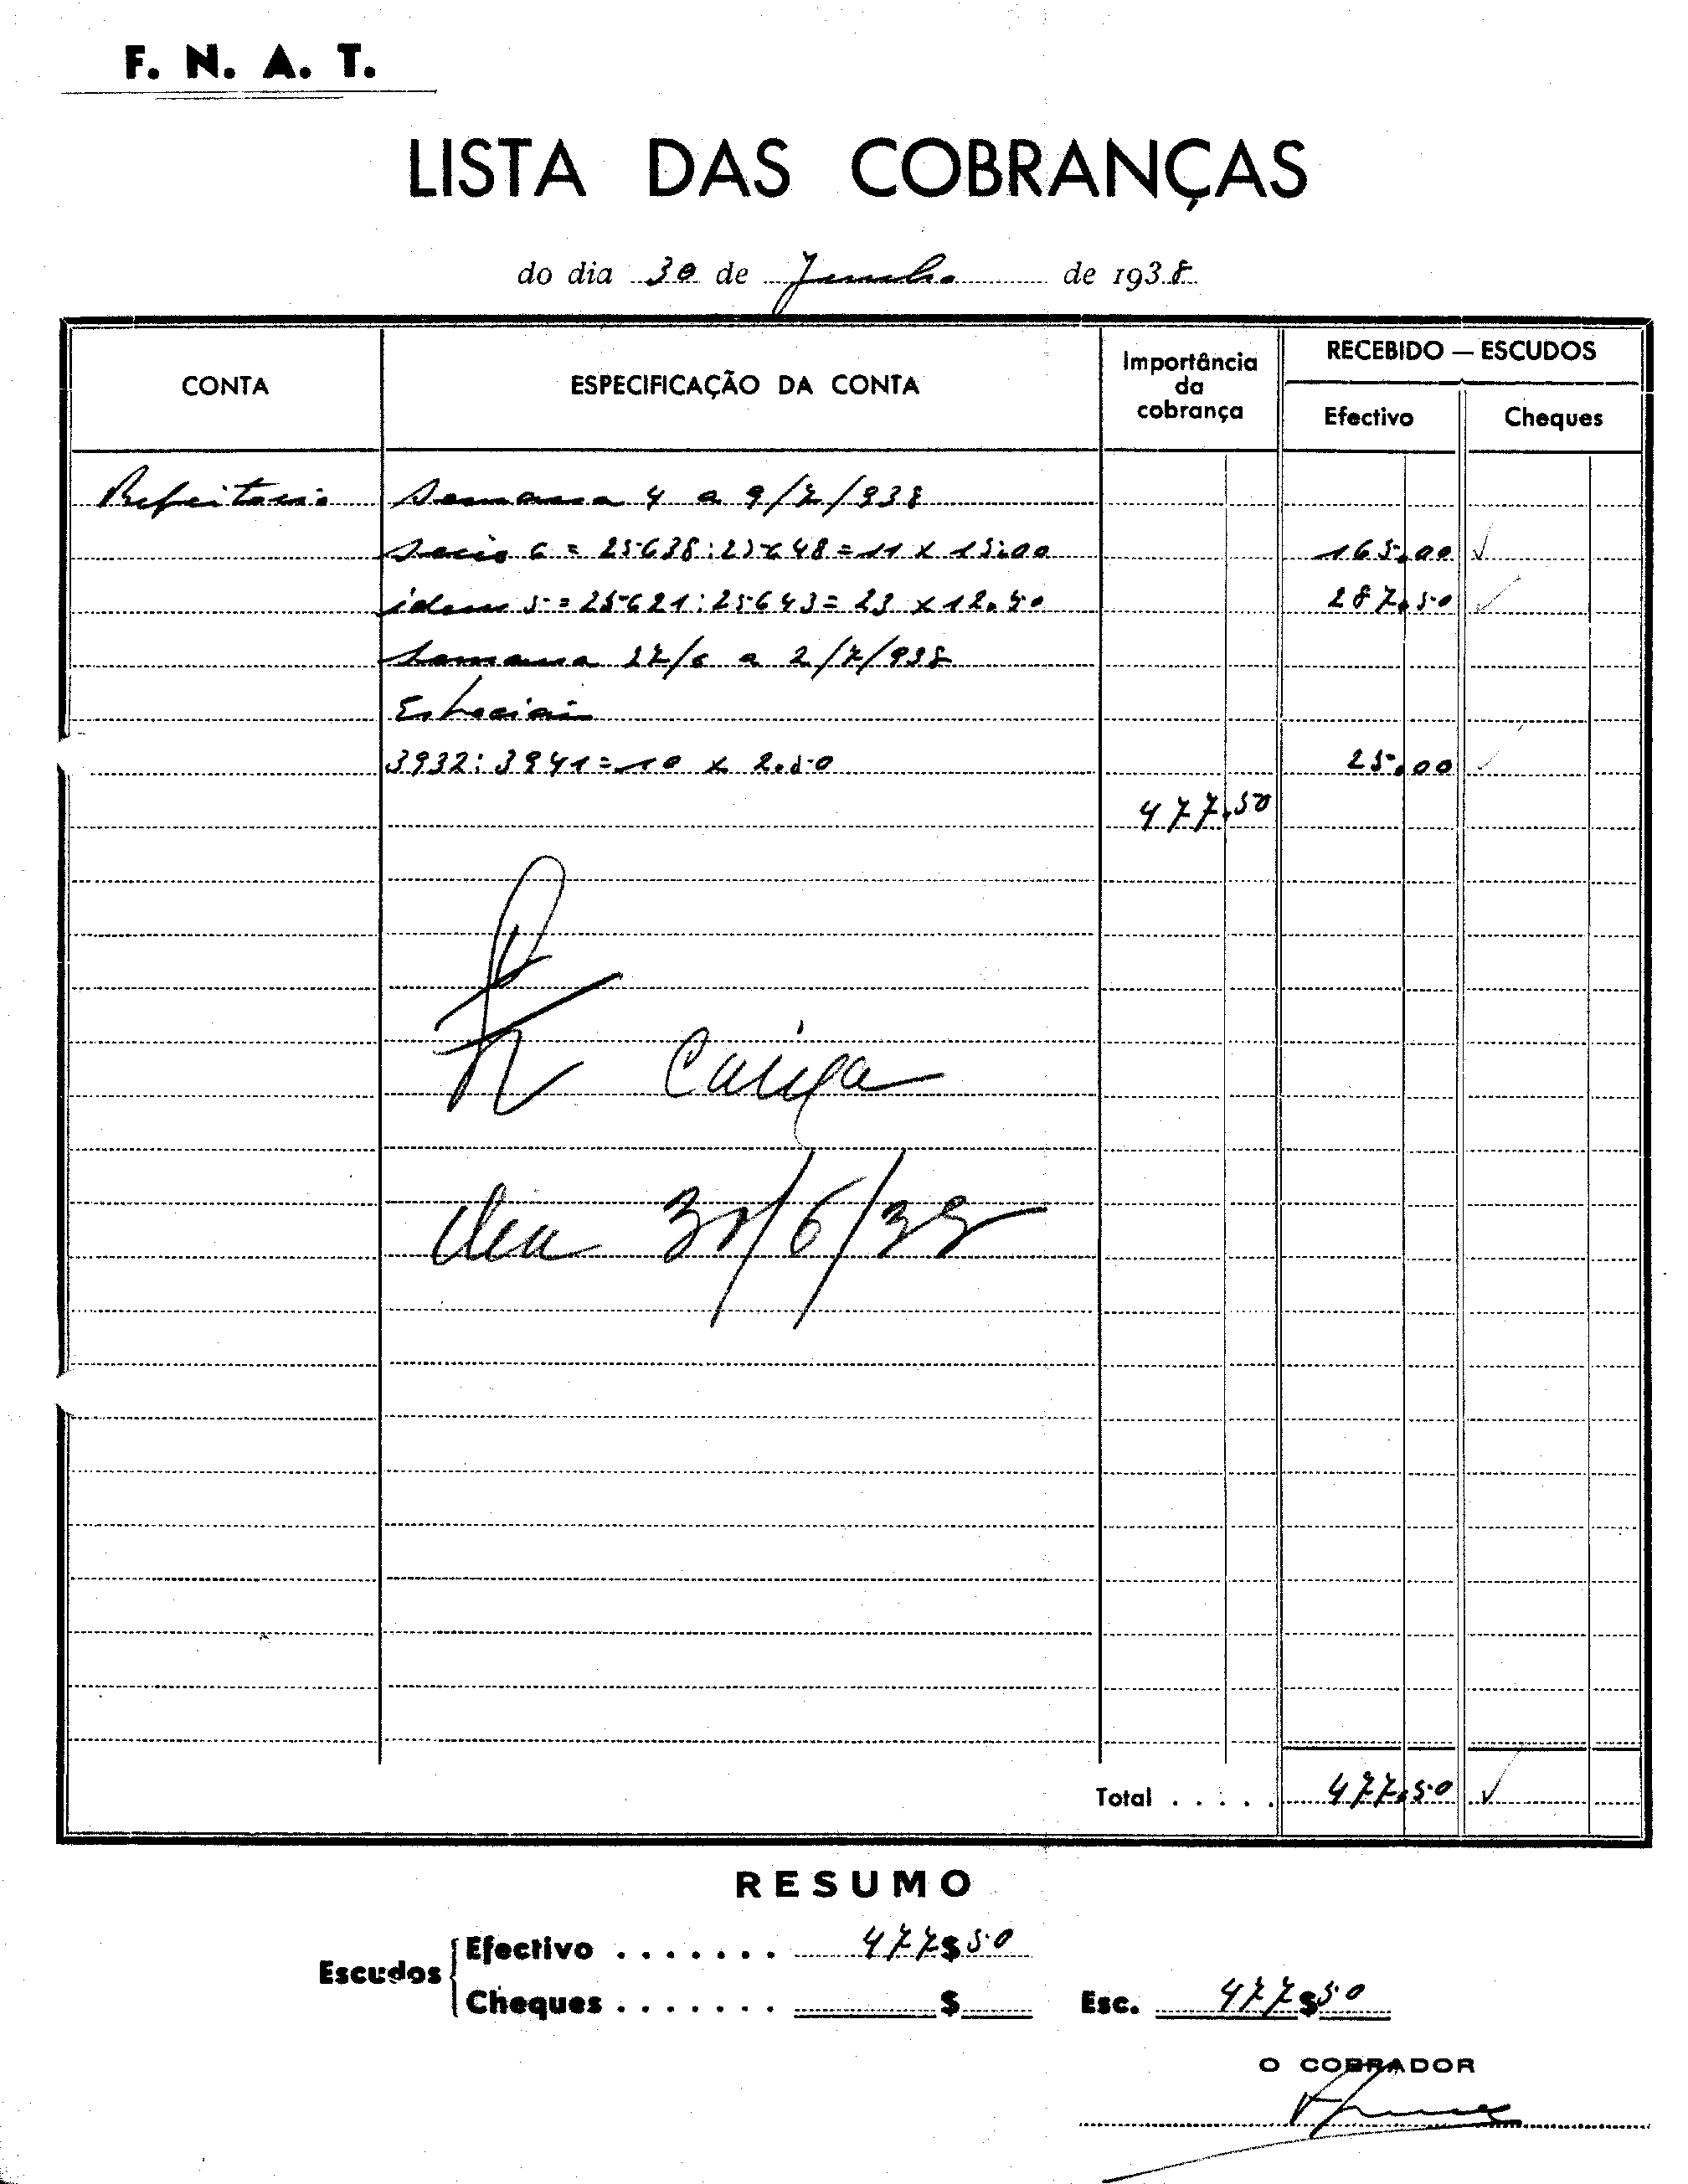 F. N. A. T.
LISTA DAS COBRANÇAS
do dia 30 de Junho de 1938
CONTA
ESPECIFICAÇÃO DA CONTA
Importância
da
cobrança
RECEBIDO — ESCUDOS
Efectivo
Cheques
Refeitorio Semana 4 a 9/7/938
Socio 6 = 25638:25648 = 11 x 15.00 165.00
idem 5 = 25621:25643 = 23 x 12.50 287.50
Semana 27/6 a 2/7/938
Especiais
3932:3941 = 10 x 2.50 25.00
477.50
Caixa
dia 30/6/38
Total ..... 477.50
RESUMO
Escudos
Efectivo ....... 477$50
Cheques ....... $
Esc. 477$50
O COBRADOR